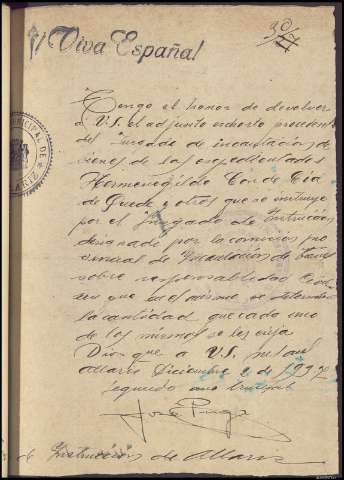 ¡Viva España!
30
Tengo el honor de devolver
a V.S. el adjunto exhorto procedente
del de incautación de
bienes de los expedientados
Hermenegildo
de y otros que se instruye
por el juzgado de Instrucción
designado por la comisión pro
vincial de Incautación de bienes
sobre responsabilidad Civil
sin que en el mismo se determine
la cantidad que cada uno
de los mismos se les exija
Dios que a V.S. m
Allariz Diciembre 2 de 1937
Segundo año triunfal
José Puga
de Instrucción de Allariz
CIPAL DE
ARIZ